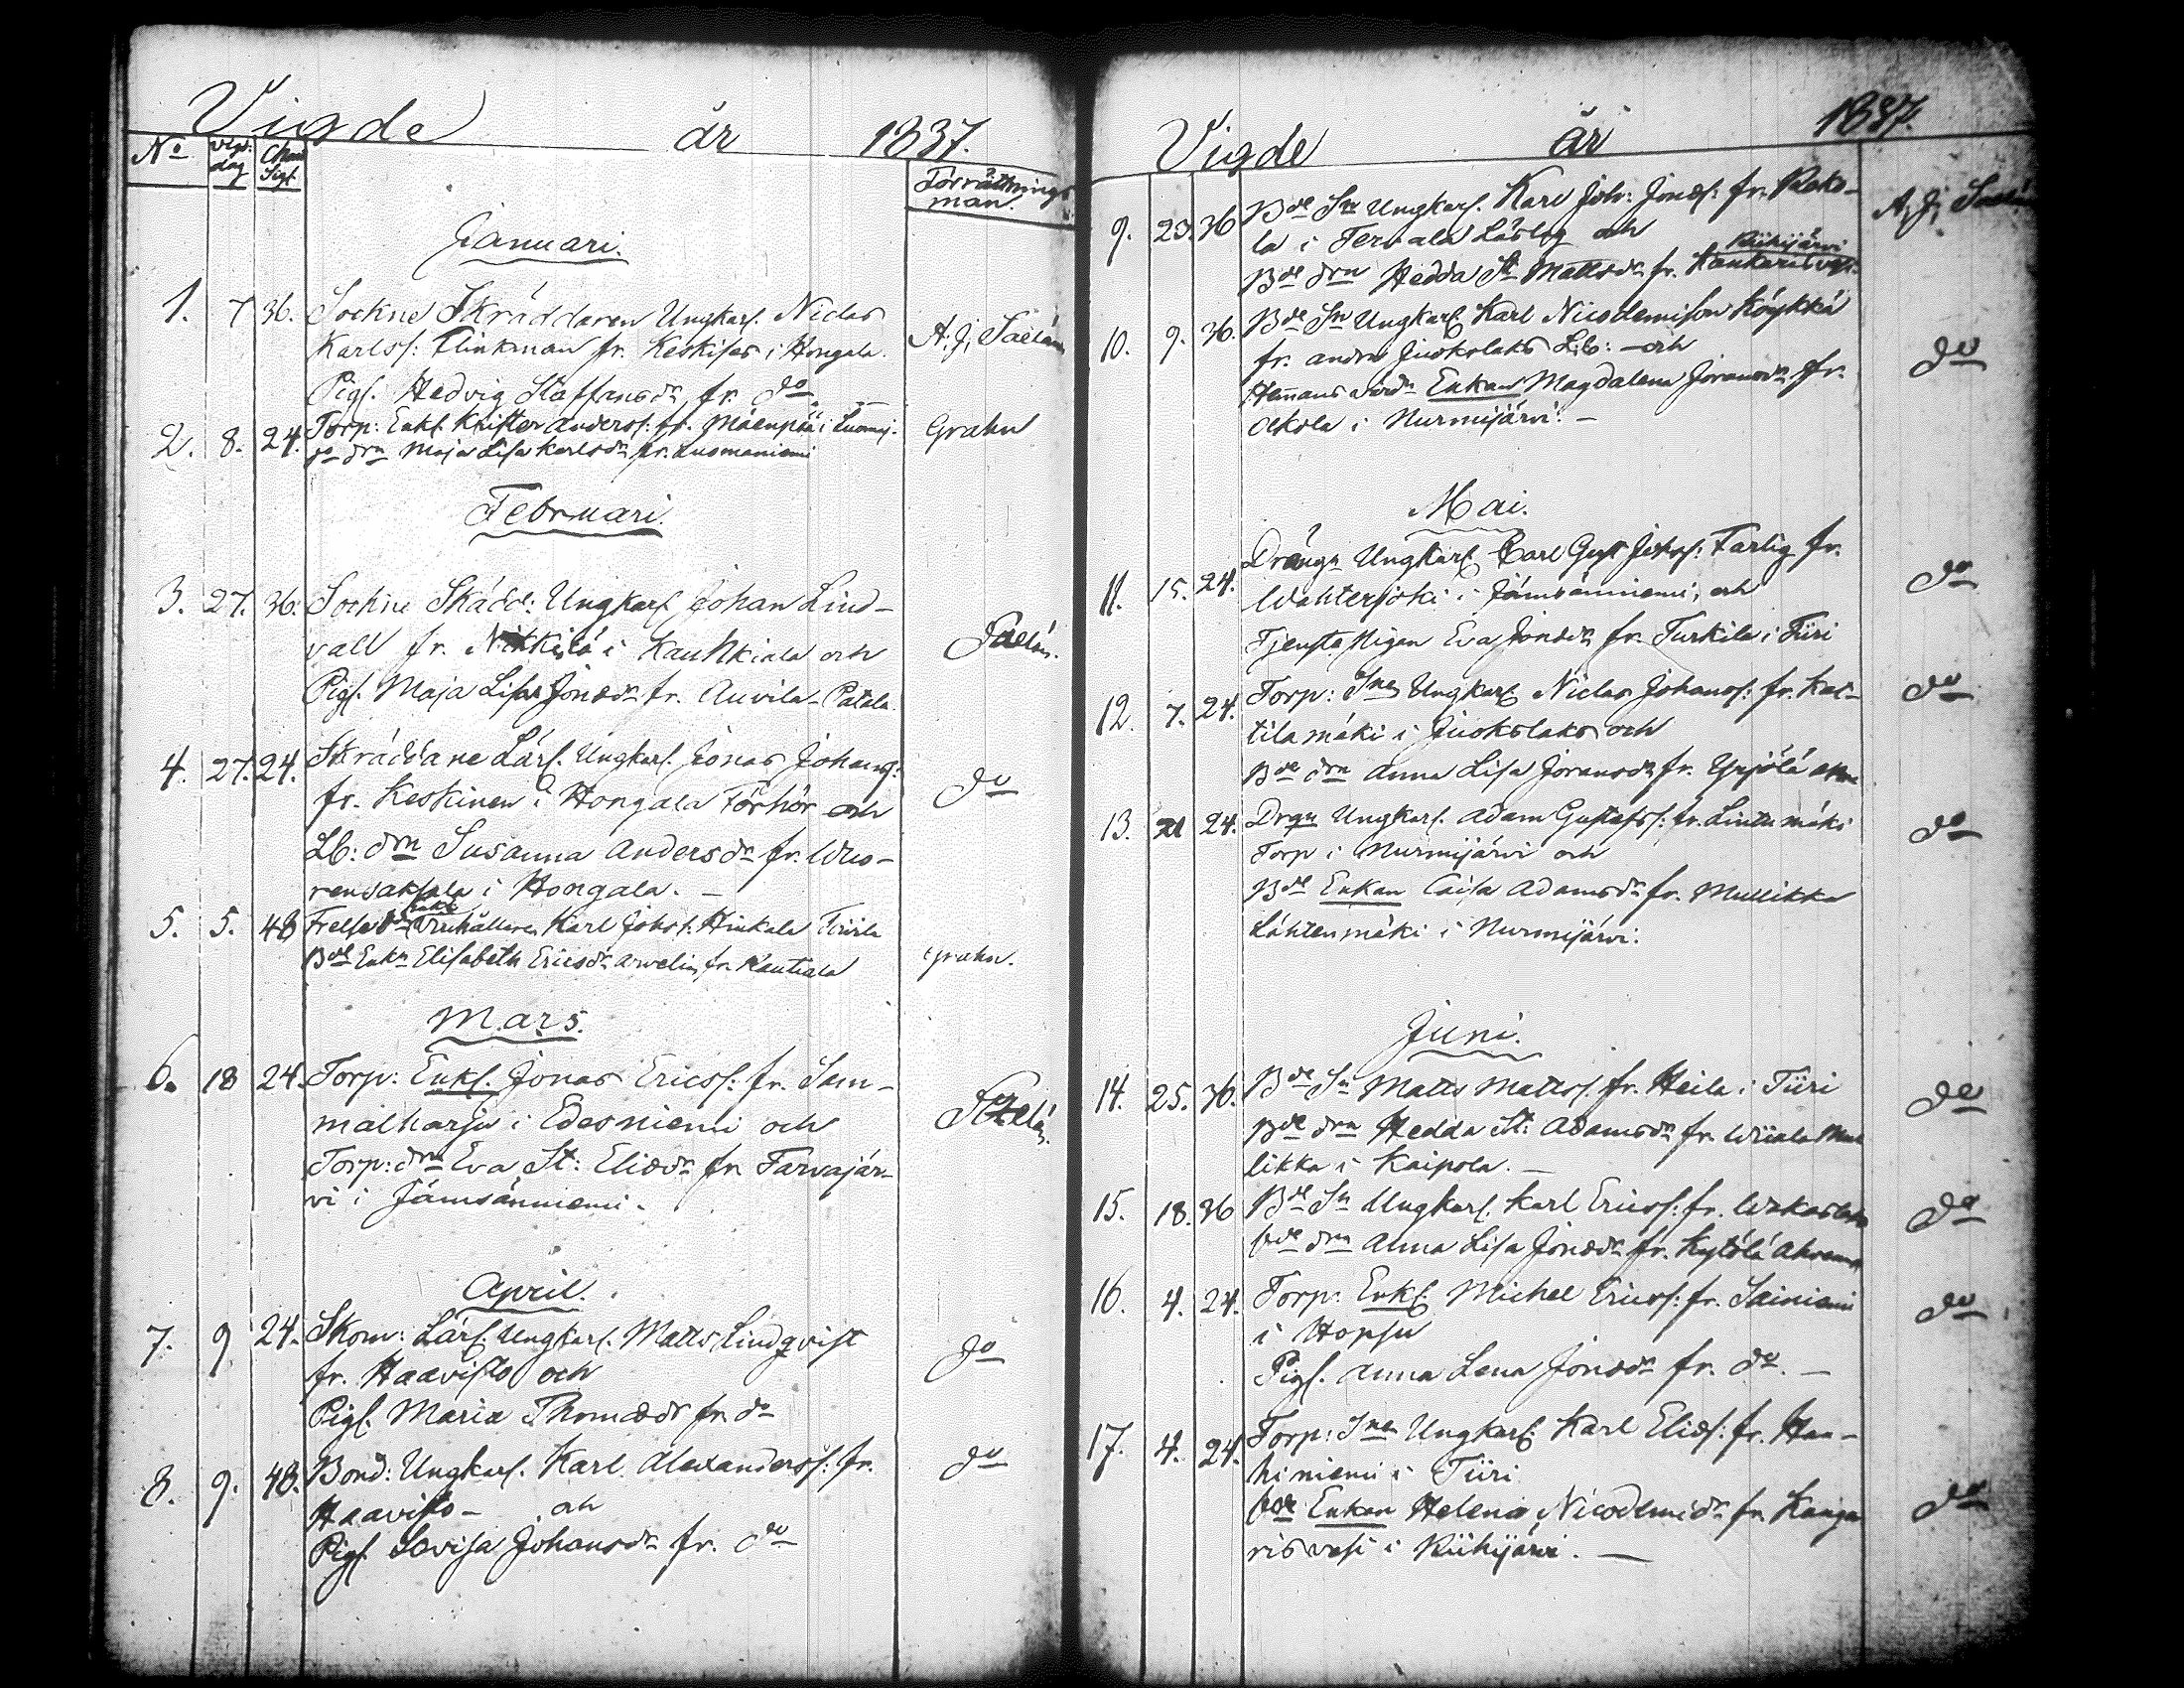 Vigde år 1837.
No Vigs: dag Char Sigt. Förrättnings man.
Januari.
1. 7 36. Sockne Skräddaren Ungkarl. Niclas
Karlss: Flinkman fr. Keskises i Hongala. A. J. Saelán
Pigl. Hedvig Staffansdr fr. do
2. 8. 24. Torp: Enkl. Krister Anderss: fr. Mäenpää i Luomj. Grahn
do drn Maja Lisa Karlsdr fr. Luomaniemi
Februari.
3. 27. 36. Sockne Skädd: Ungkarl Johan Lind-
vall fr. Nikkilä i Kauhkiala och Saelán.
Pigl. Maja Lisa Jonsdr fr. Auvila-Patala.
4. 27. 24. Skräddare Lärl. Ungkarl. Jonas Johanss:
fr. Keskinen i Hongala Förhör och do
Lb: drn Susanna Andersdr fr. Wuo-
rensaksala i Hongala. –
5. 5. 48 Frelse Bruhållaren Karl Johss: Hinkala Tiirila
Bde Enkn Elisabeth Ericsdr Arvelin fr. Rautiala Grahn.
Mars.
6. 18 24. Torp: Enkl. Jonas Ericss: fr. Sam-
malharju i Edesniemi och Saelán.
Torp: drn Eva St: Eliædr fr. Tarvajär-
vi i Jämsänniemi.
April.
7. 9 24. Skom: Lärl. Ungkarl. Matts Lindqvist do
fr. Haavisto och
Pigl. Maria Thomædr fr. do
8. 9. 48. Bond: Ungkarl. Karl Alexanderss: fr. do
Haavisto – och
Pigl. Lovisa Johansdr fr. do
Vigde år 1837.
9. 23. 36 Bde Sn Ungkarl. Karl Joh: Jonæs: fr. A. J. Saelán
la i Tervala Lösleg och
Riihijärvi
Bde drn Hedda St Mattsdr fr. Kankarisvesi.
10. 9. 36. Bde Sn Ungkarl Karl Nicodemison Köykkä
fr. andra Juokslaks Lib: – och do
Hemans Enkan Magdalena Göransdr fr.
Ockola i Nurmijärvi. –
Mai.
11. 15. 24. Drängn Ungkarl Carl Gust Johss: Farlig fr. do
Wahterjoki i Jämsänniemi, och
Tjenste Pigan Eva Jonædr fr. Turkila i Tiiri
12. 7. 24. Torp: Snen Ungkarl Niclas Johanss: fr. Kat- do
tilamäki i Juokslaks och
Bde drn Anna Lisa Göransdr fr. Yrjölä
13. 21 24. Drgn Ungkarl. Adam Gustafss: fr. Lintumäki do
Torp i Nurmijärvi och
Bde Enkan Caisa Adamsdr fr. Mullikka
Lähtenmäki i Nurmijärvi.
Juni.
14. 25. 36. Bde Sn Matts Mattss. fr. Heila i Tiiri do
Bde drn Hedda St: Adamsdr fr. Wiiala Mul
likka i Kaipola. –
15. 18. 36 Bde Sn Ungkarl. Karl Ericss: fr. do
Bde drn Anna Lisa Jonædr fr. Kytölä
16. 4. 24. Torp: Enkl Michel Ericss: fr. Sainiemi do
i Hopsu
Pigl. Anna Lena Jonædr fr. do. –
17. 4. 24. Torp: Snen Ungkarl Karl Eliæs: fr. Haa-
hiniemi i Tiiri
Bde Enkan Helena Nicodemidr fr. Kanga do
risvesi i Riihijärvi. –